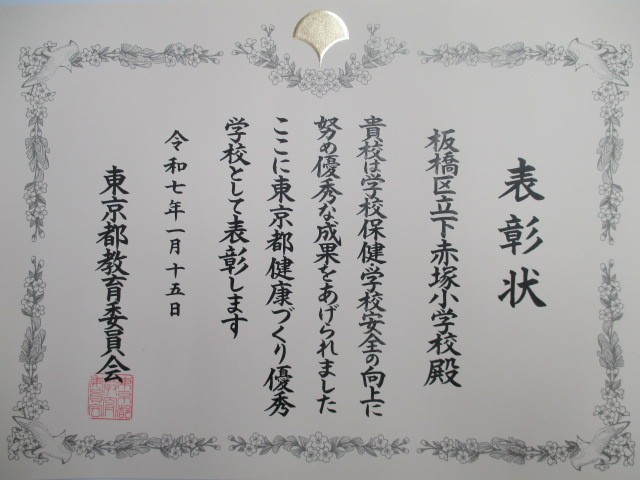 表彰状
板橋区立下赤塚小学校殿
貴校は学校保健・学校安全の向上に
努め優秀な成果をあげられました
ここに東京都健康づくり優秀
学校として表彰します
令和七年一月十五日
東京都教育委員会